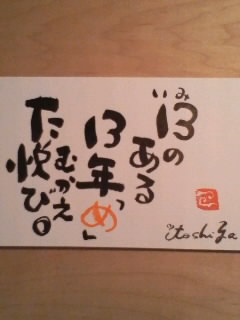 み
い13の
ある
13年「め」
むかえ
た悦び。